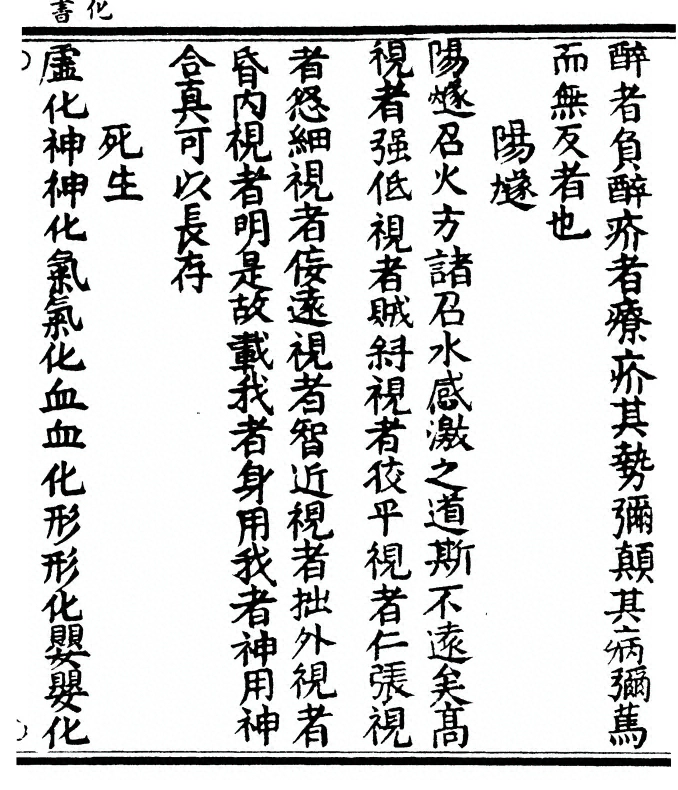 化書
醉者負醉疥者療疥其勢彌顛其病彌篤
而無反者也
陽燧
陽燧召火方諸召水感激之道斯不遠矣高
視者强低視者賊斜視者狡平視者仁張視
者怒細視者佞遠視者智近視者拙外視者
昏内視者明是故載我者身用我者神用神
合真可以長存
死生
虛化神神化氣氣化血血化形形化嬰嬰化